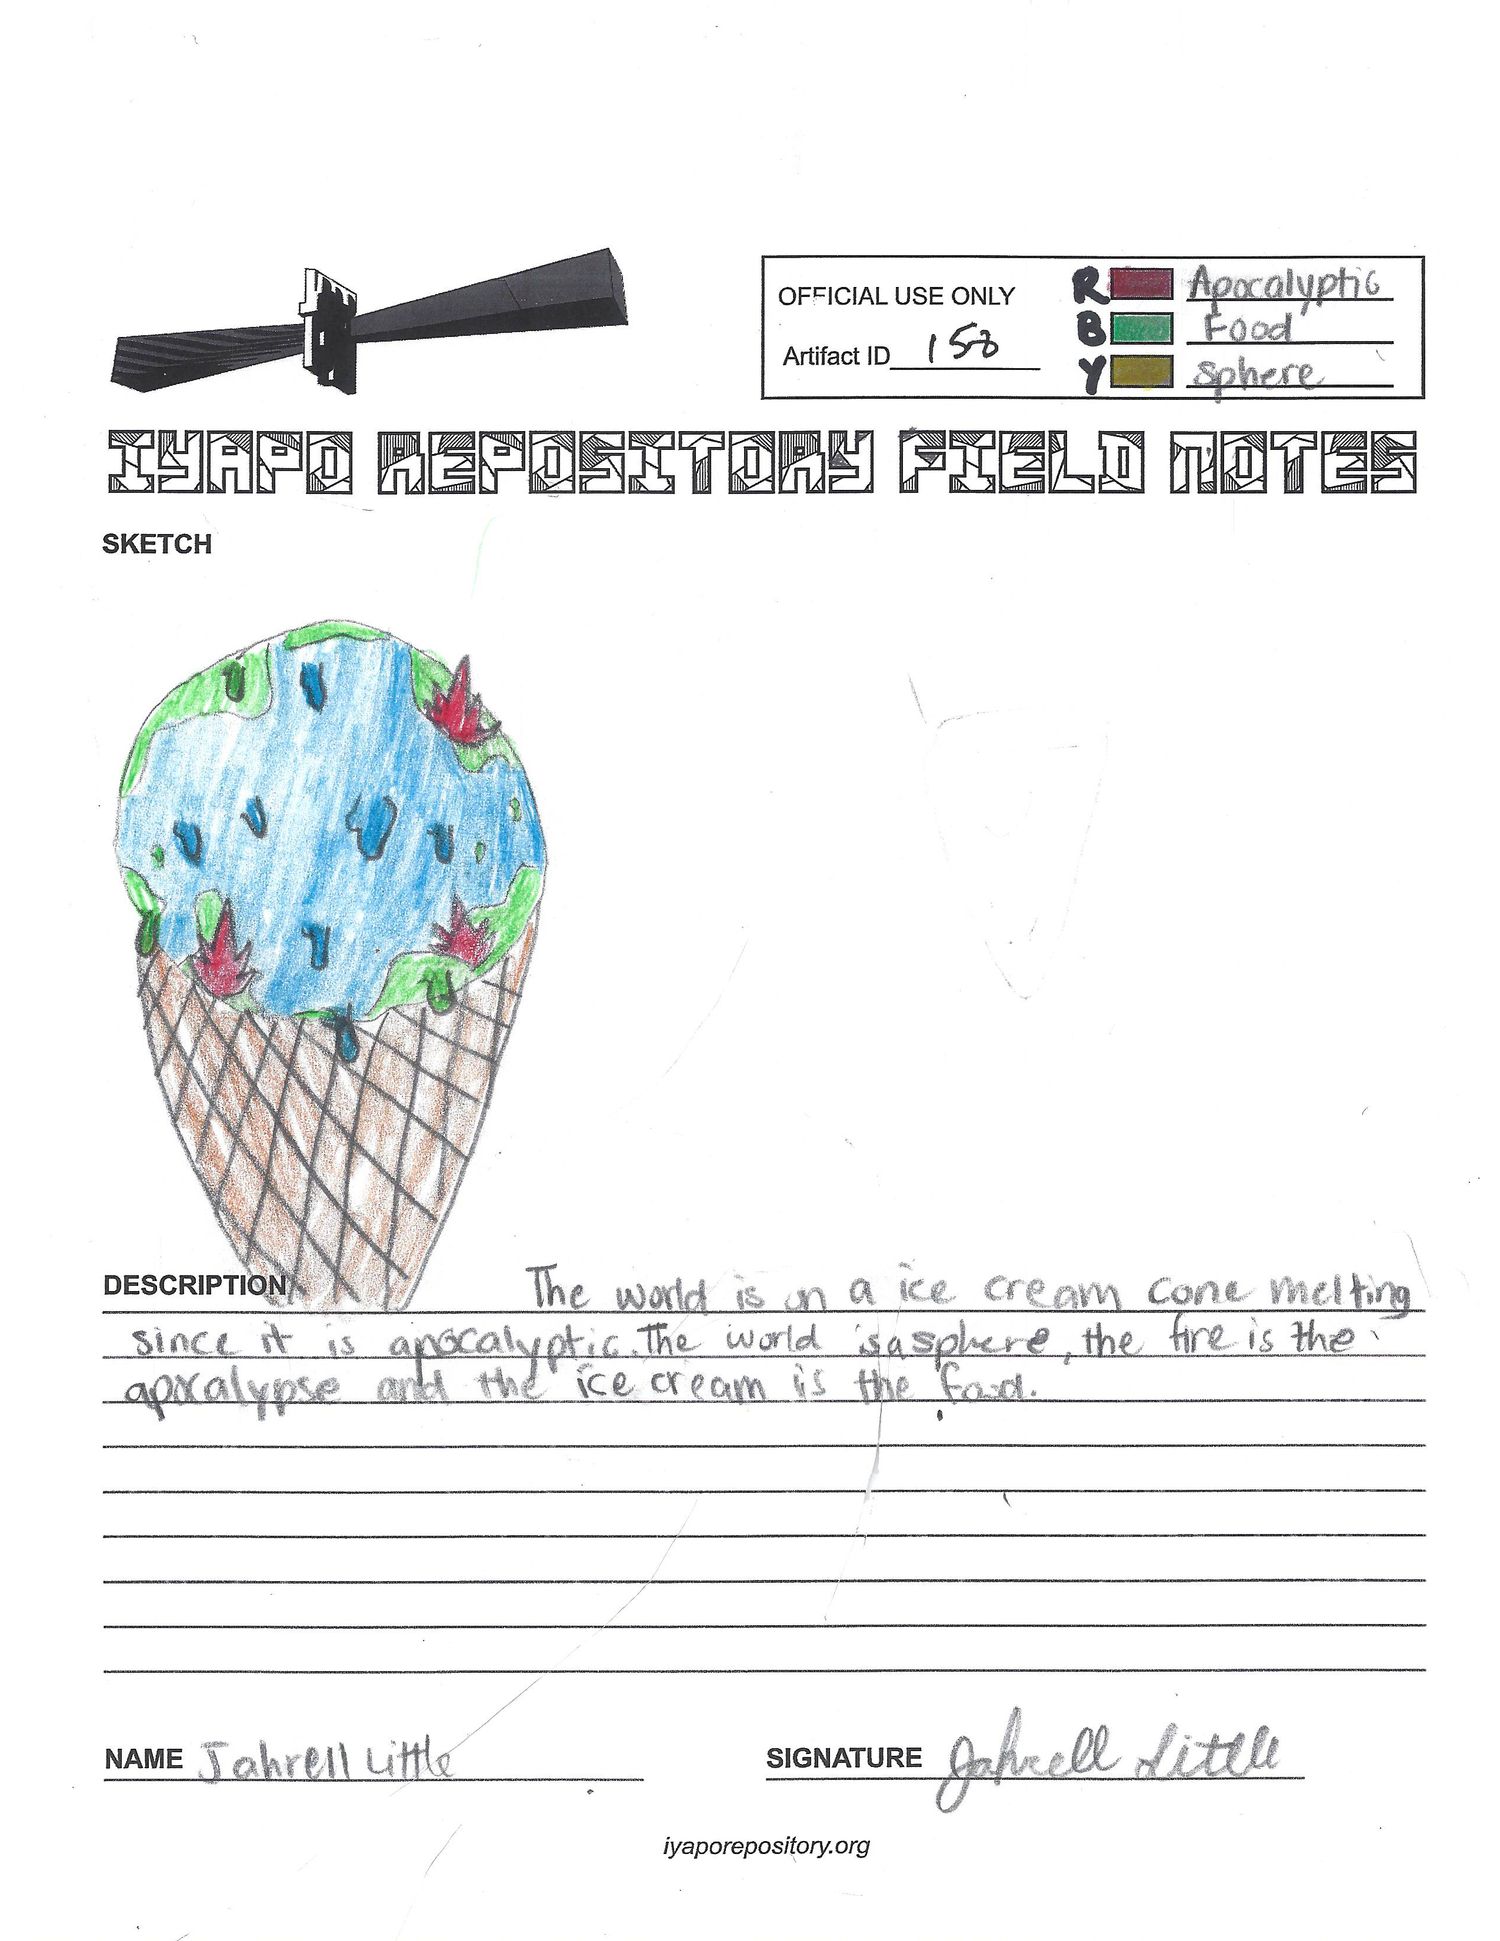 OFFICIAL USE ONLY
Artifact ID 158
R Apocalyptic
B Food
Y sphere
IYAPO REPOSITORY FIELD NOTES
SKETCH
DESCRIPTION The world is on a ice cream cone melting
since it is apocalyptic. The world is a sphere, the fire is the
apocalypse and the ice cream is the food.
NAME Jahrell Little
SIGNATURE Jahrell Little
iyaporepository.org